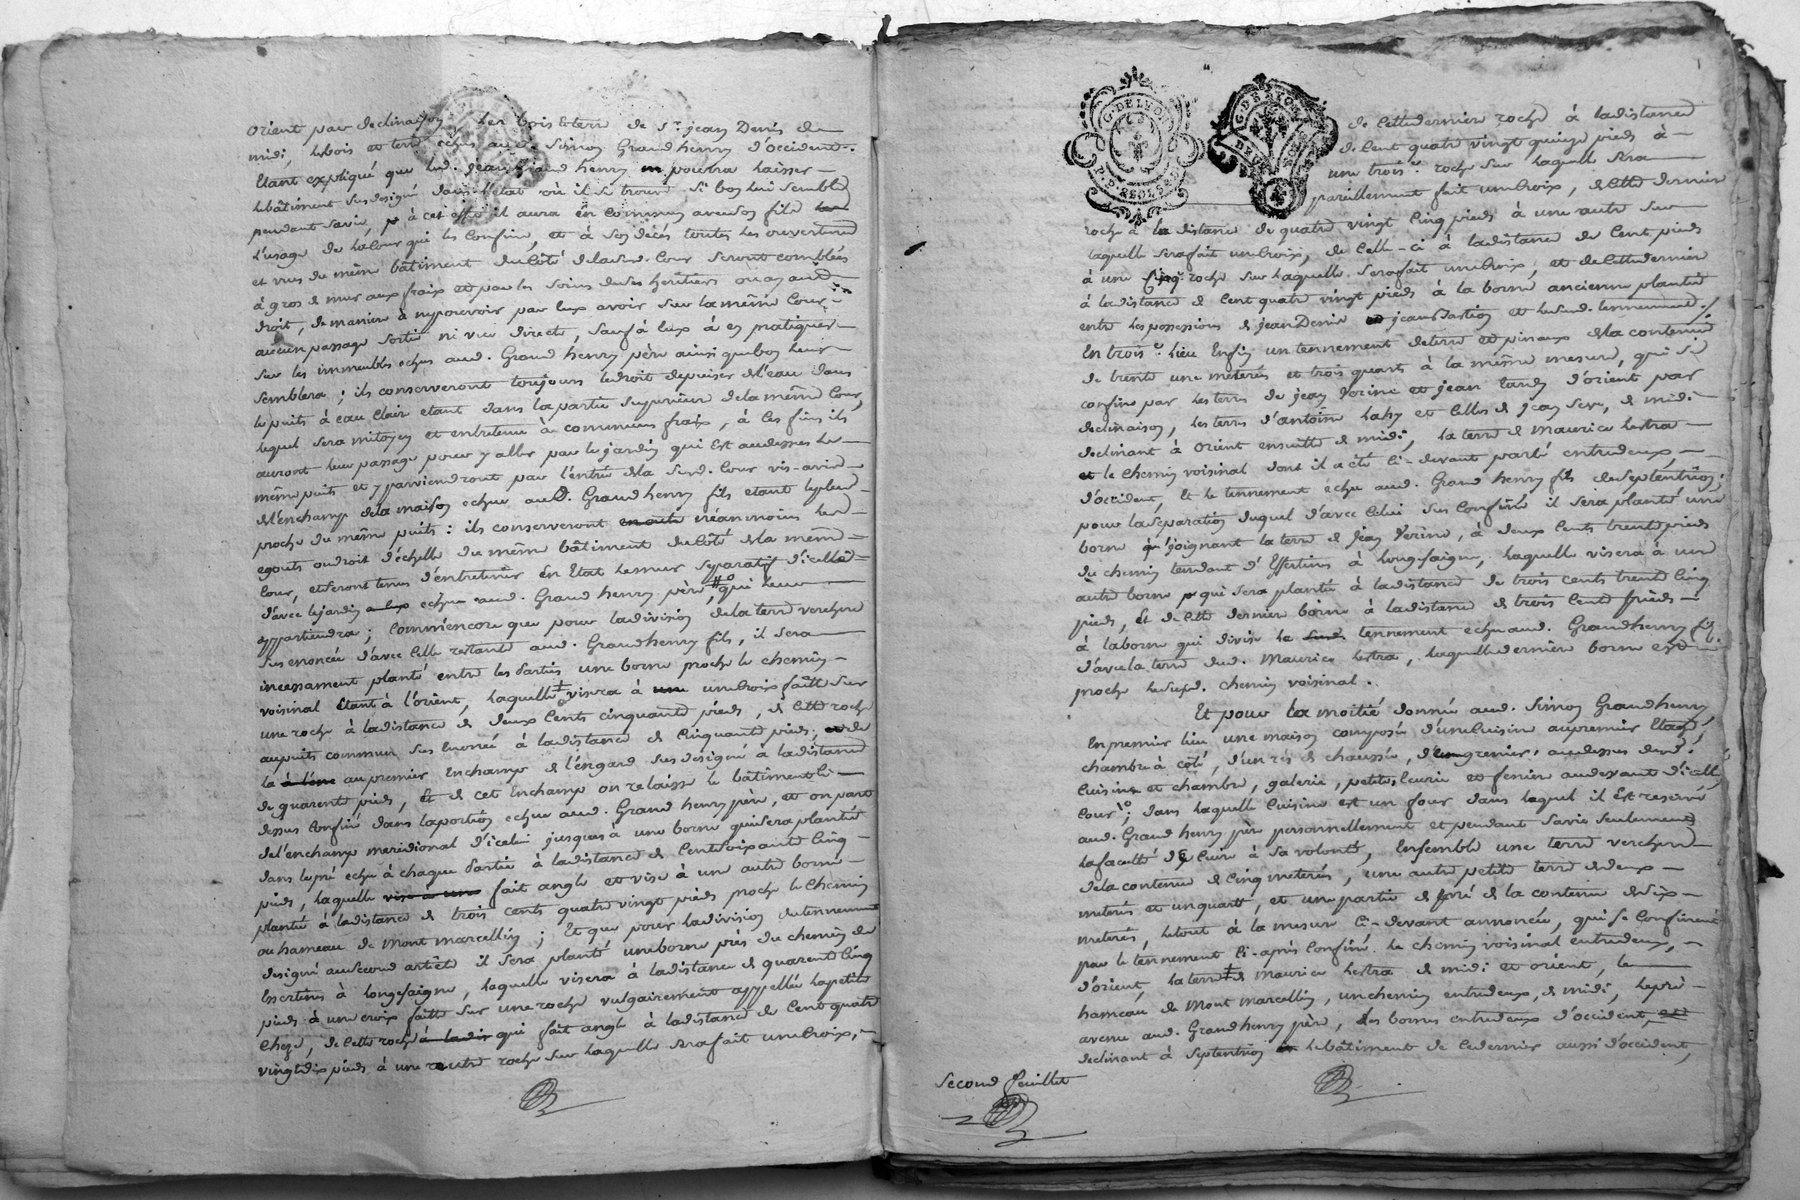 orient par declinaison, les bois et terre de Sr. jean Denis de
midi, le bois et terre echus aud. Simon Grandhenry d'occident.
Etant expliqué que led. jean Grand henry pourra laisser
le bâtiment susdesigné dans l'état où il se trouve si bon lui semble
pendant sa vie, à cet effet il aura en commun avec son fils
l'usage de la cour qui les confine, et à son décés toutes les ouvertures
et vues du même bâtiment du côté de la sud. cour seront comblées
à gros de mur aux fraix et par les soins de ses héritiers ou ayant
droit, de maniere à n'y pouvoir par eux avoir sur la même cour
aucun passage sortie ni vue directe, sauf à eux à en pratiquer
sur les immeubles echus aud. Grand henry père ainsi que bon leur
semblera ; ils conserveront toujours le droit de puiser de l'eau dans
le puits à eau clair etant dans la partie superieure de la même cour,
lequel sera mitoyen et entretenu à communs fraix, à ces fins ils
auront leur passage pour y aller par le jardin qui est au dessus du
même puits et y parviendront par l'entrée de la susd. cour vis-avis
de l'enchamp de la maison echue aud. Grand henry fils etant le plus
proche du même puits : ils conserveront néanmoins les
egouts ou droit d'échelle du même bâtiment du côté de la même
cour, et seront tenus d'entretenir en Etat le mur separatif d'icelle
d'avec le jardin echu aud. Grand henry père, qui leur
appartiendra ; comm'encore que pour la division de la terre verchere
sus enoncée d'avec celle restante aud. Grand henry fils, il sera
incessament planté entre les parties une borne proche le chemin
voisinal étant à l'orient, laquelle visera à une croix faitte sur
une roche à la distance de deux cents cinquante pieds, de cette roche
au puits commun sus enoncé à la distance de cinquante pieds, de
la au premier enchamp de l'engard sus designé à la distance
de quarente pieds, et de cet enchamp on relaisse le bâtiment ci
dessus confiné dans la portion echue aud. Grand henry père, et on part
de l'enchamp meridional d'icelui jusques à une borne qui sera plantée
dans le pré echu à chaque partie à la distance de cent soixante cinq
pieds, laquelle fait angle et vise à un autre borne
plantée à la distance de trois cents quatre vingt pieds proche le chemin
au hameau de Mont marcellin ; Et que pour la division du tennement
designé au second article il sera planté une borne près du chemin de
Essertines à longesaigne, laquelle visera à la distance de quarente cinq
pieds à une croix faitte sur une roche vulgairement appellée la petite
Cheze, de cette roche qui fait angle à la distance de cent quatre
vingt dix pieds à une autre roche sur laquelle sera fait une croix,
G. DE LYON
P. P. REGLS. 8. D
G. DE LYON
DEUX
de cette derniere roche à la distance
de cent quatre vingt quinze pieds à
une trois.e roche sur laquelle sera
pareillement fait une croix, de cette derniere
roche à la distance de quatre vingt cinq pieds à une autre sur
laquelle sera fait une croix, de celle-ci à la distance de cent pieds
à une cinq.e roche sur laquelle sera fait une croix, et de cette derniere
à la distance de cent quatre vingt pieds à la borne ancienne plantée
entre les possessions de jean Denis jean Bastion et le sud. tennement./
En trois.e lieu Enfin un tennement de terre et pinaux de la contenue
de trente une meterés et trois quarts à la même mesure, qui se
confine par les terres de jean Verine et jean tardy d'orient par
declinaison, les terres d'antoine Lassy et celles de jean Seve, de midi
declinant à orient ensuitte de midi, la terre de Maurice Lestra
et le chemin voisinal dont il a été ci-devant parlé entredeux,
d'occident, et le tennement echu aud. Grand henry fils de septentrion;
pour la separation duquel d'avec celui sus confiné il sera planté une
borne joignant la terre de jean Verine, à deux cents trente pieds
du chemin tendant d'Essertines à longesaigne, laquelle visera à un
autre borne qui sera plantée à la distance de trois cents trente cinq
pieds, et de cette derniere borne à la distance de trois cents pieds
à la borne qui divise le tennement echu aud. Grandhenry fils
d'avec la terre dud. Maurice Lestra, laquelle derniere borne est
proche le susd. chemin voisinal.
Et pour la moitié donnée aud. Simon Grandhenry,
En premier lieu, une maison composée d'une cuisine au premier Etage,
chambre à côté, d'un rés de chaussée, d'un grenier, au dessus desd.
cuisine et chambre, galerie, petite écurie et fenier au devant d'icelle,
cour ; dans laquelle cuisine est un four dans lequel il est reservé
aud. Grand henry père personnellement et pendant sa vie seulement
la faculté de cuire à sa volonté, Ensemble une terre verchere
de la contenue de cinq meterés, une autre petite terre de deux
meterés et un quart, et une partie de pré de la contenue de six
meterés, le tout à la mesure ci-devant annoncée, qui se confinent
par le tennement ci-après confiné le chemin voisinal entredeux,
d'orient, la terre de Maurice Lestra de midi et orient, le
hameau de Mont marcellin, un chemin entredeux, de midi, le pré
avenu aud. Grand henry père, les bornes entredeux d'occident,
declinant à Septentrion le bâtiment de ce dernier aussi d'occident,
Second feuillet